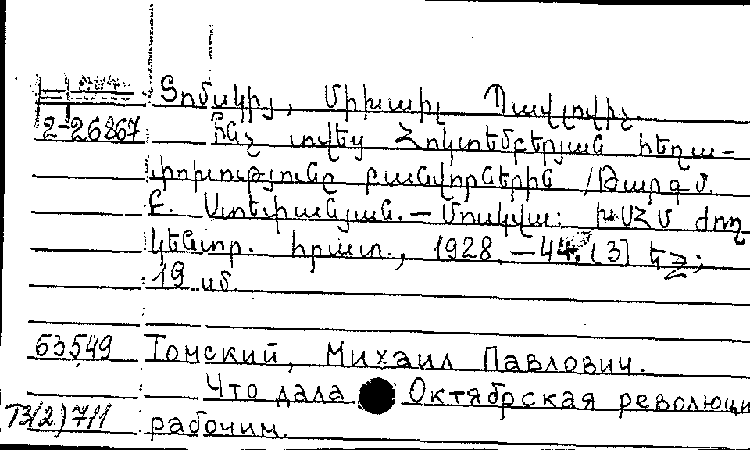 Տոմսկիյ, Միխաիլ Պավլովիչ.
2-26867 Ի՞նչ տվեց Հոկտեմբերյան հեղա-
փոխությունը բանվորներին /Թարգմ.
Ե. Ստեփանյան.— Մոսկվա: ԽՍՀՄ ժող.
կենտր. հրատ., 1928.—44, [3] եջ;
19 սմ.
63549 Томский, Михаил Павлович.
Что дала Октябрская революци
T3(2)711 рабочим.